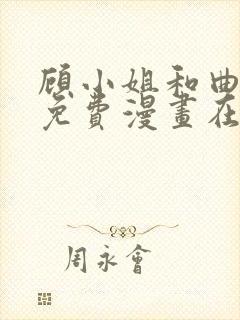 顾小姐和曲
免費漫畫在
周永會